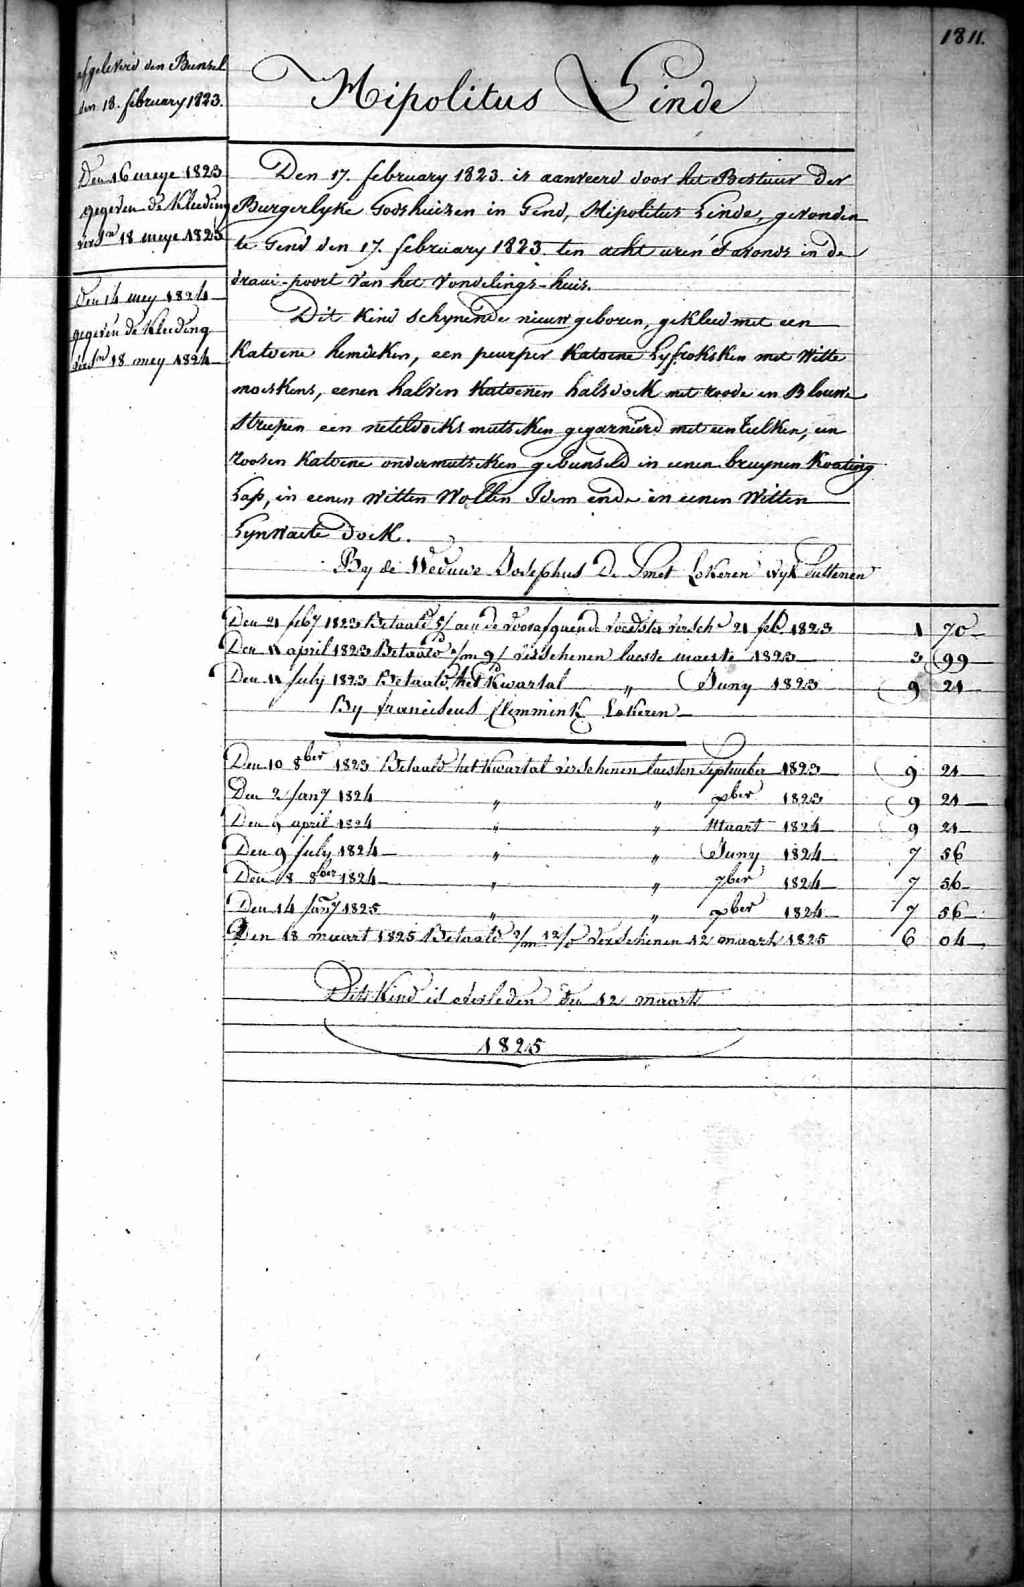 1811.
afgeleverd den Bunsel
den 18. february 1823.
Den 16 meye 1823
gegeven de Kleeding
versn 18 meye 1823
Den 14 mey 1824
gegeven de Kleeding
versn 18 mey 1824
Hipolitus Linde
Den 17. february 1823. is aanveerd door het Bestuur der
Burgerlyke Godshuizen in Gend, Hipolitus Linde, gevonden
te Gend den 17. february 1823. ten acht uren s'avonds in de
draai-poort van het vondelings-huis.
Dit Kind schynende nieuw geboren, gekleed met een
Katoene hemdeken, een peurper Katoene Lyfroksken met Witte
moeskens, eenen halven Katoenen halsdoek met roode en Blauwe
streepen een neteldoeks mutseken gegarnierd met een Tulken, een
roosen Katoene ondermutseken gebunseld in eenen bruynen Koating
Lap, in eenen Witten Wollen Idem ende in eenen Witten
Lynwaete doek.
By de Weduwe Josephus De Smet Lokeren Wyk
Den 21 feby 1823 Betaald 5/ aen de voorafgaende voedster versch 21 feb 1823 1 70
Den 11 april 1823 Betaald 1/m 9/ verschenen laeste maerte 1823 3 99
Den 11 July 1823 Betaald het Kwartal " Juny 1823 9 21
By franciscus Clemmink Lokeren
Den 10 8ber 1823 Betaald het Kwartal verschenen laesten September 1823 9 21
Den 2 Jany 1824 " " xber 1823 9 21
Den 9 april 1824 " " Maart 1824 9 21
Den 9 July 1824 " " Juny 1824 7 56
Den 8 8ber 1824 " " 7ber 1824 7 56
Den 14 Jany 1825 " " xber 1824 7 56
Den 18 maart 1825 Betaald 2/m 12/d verschenen 12 maart 1825 6 04
Dit Kind is overleden den 12 maart
1825